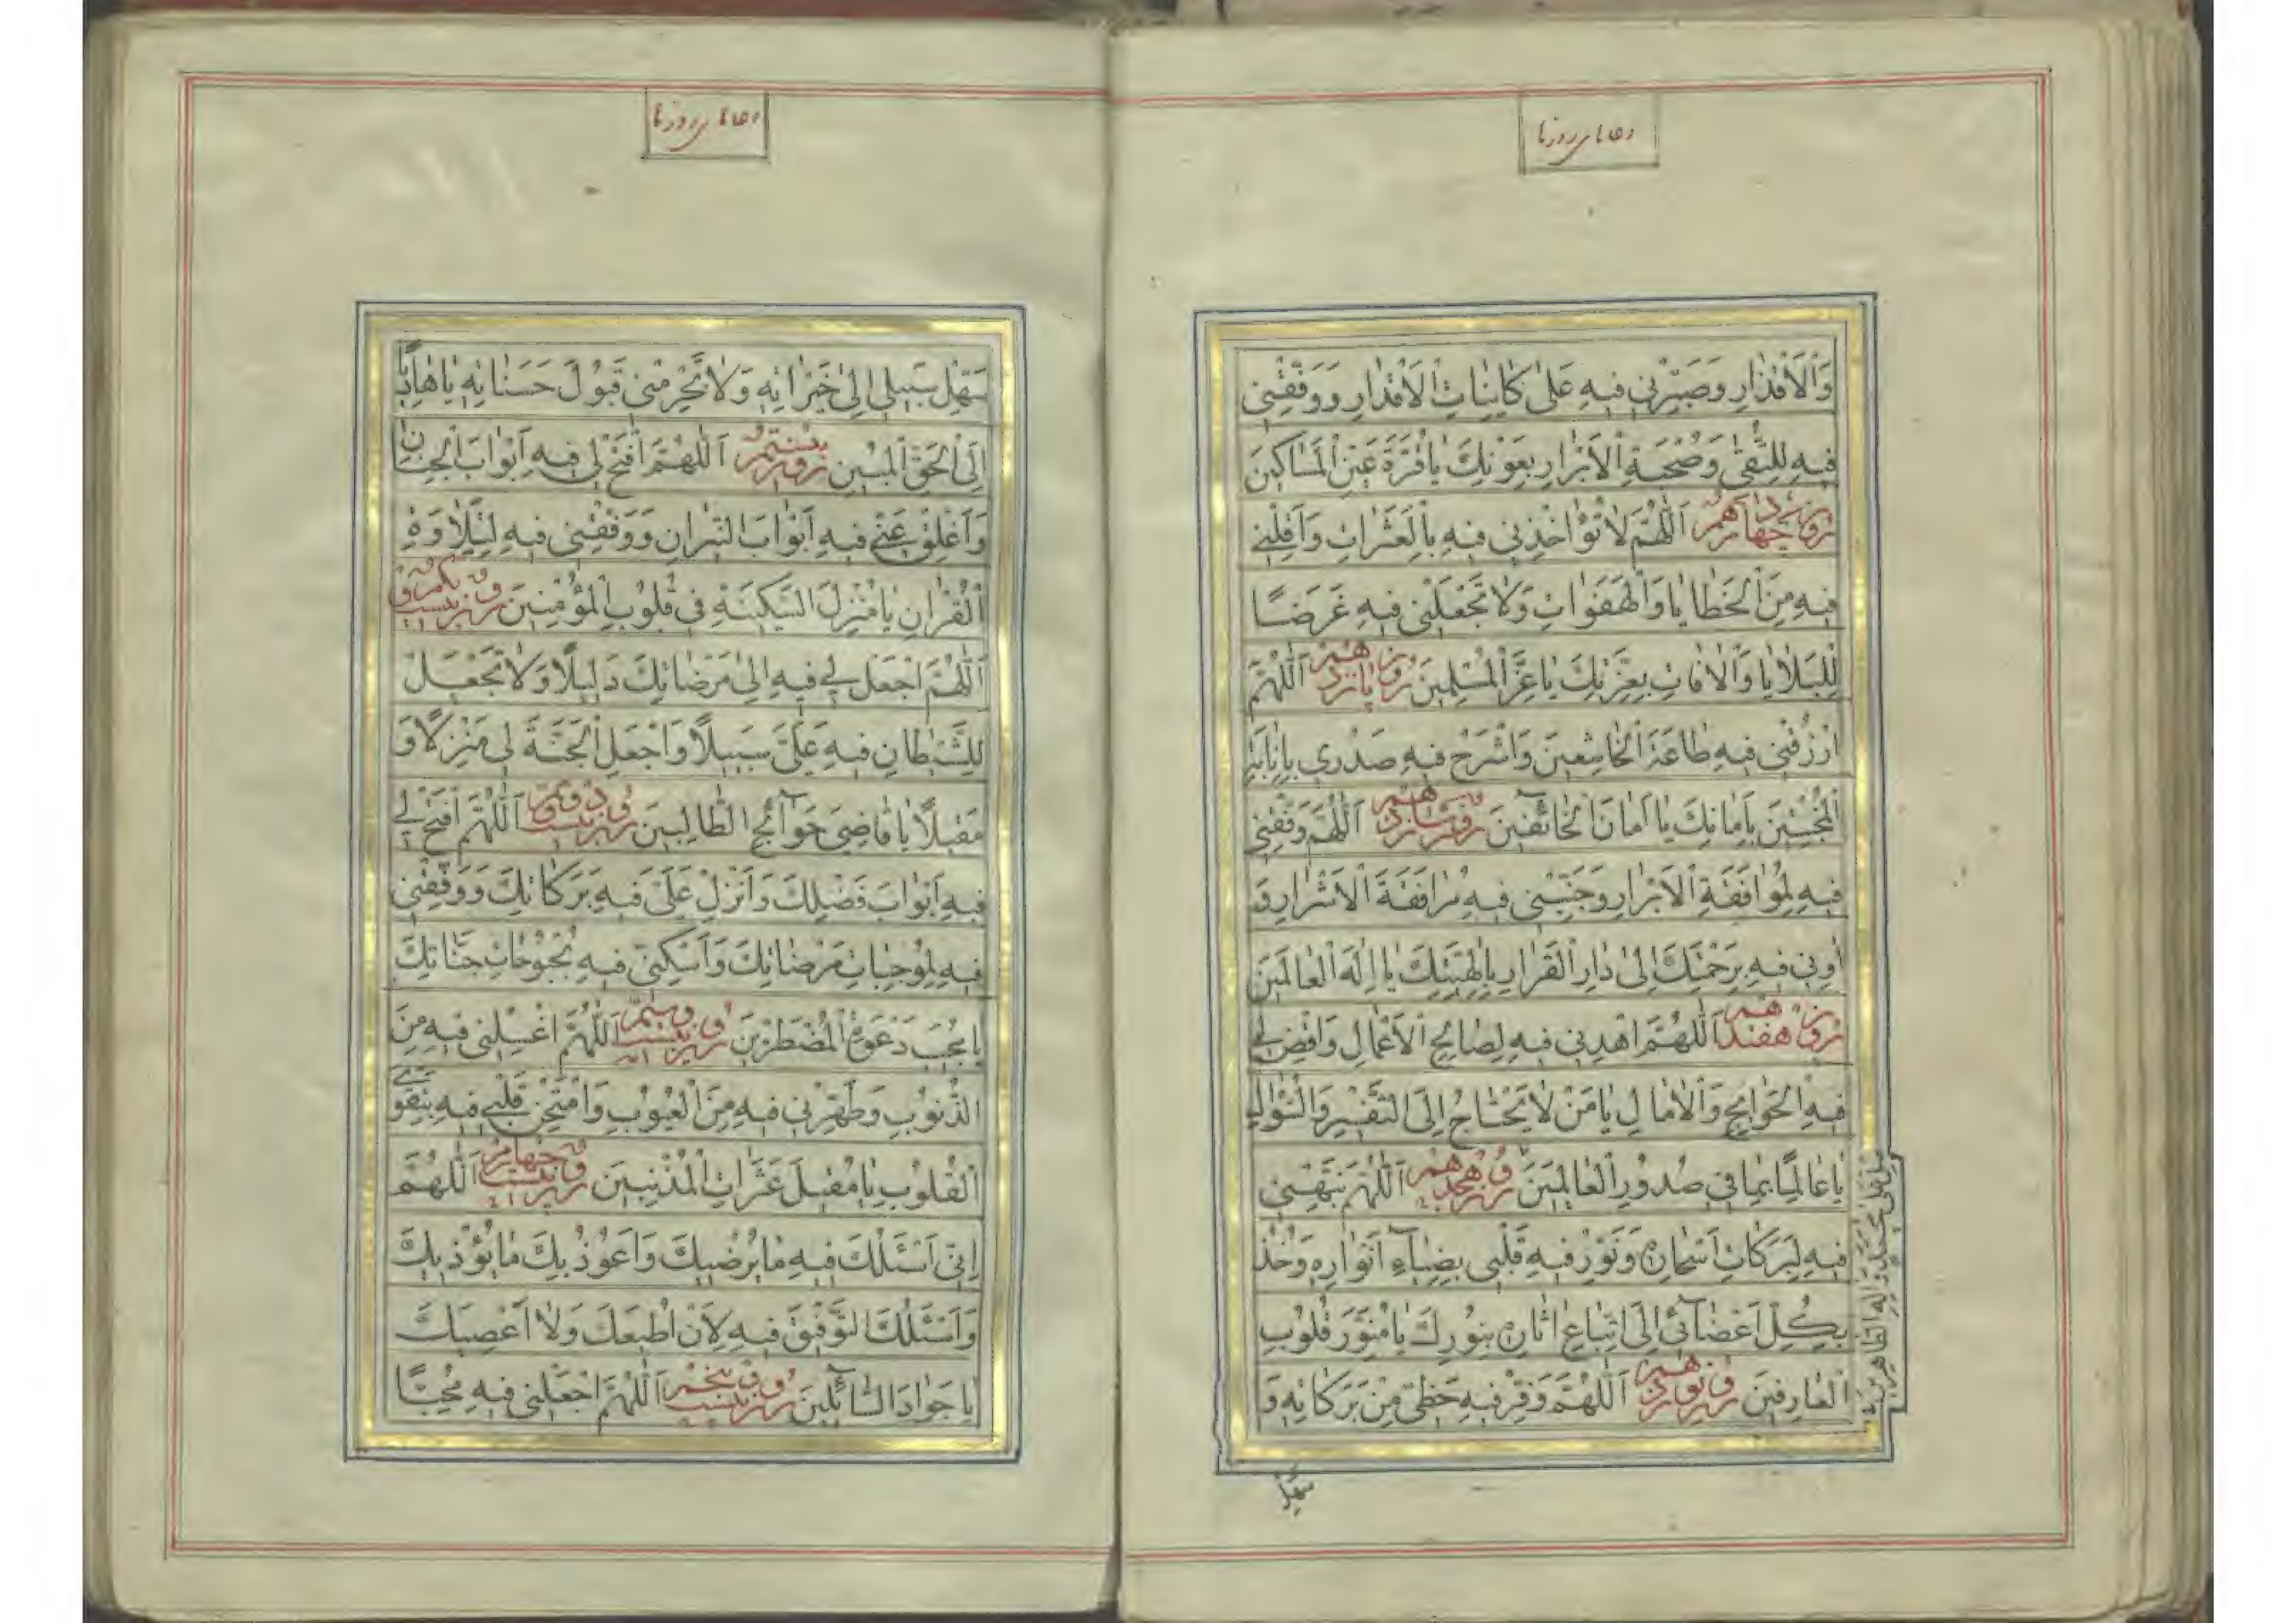 دعاهای روزها
وَالْاَقْذٰارِ وَصَبِّرْنی فیهِ عَلیٰ کٰاۤئِنٰاتِ الْاَقْدٰارِ وَوَفِّقْنی
فیهِ لِلتُّقیٰ وَصُحْبَةِ الْاَبْرٰارِ بِعَوْنِكَ یٰا قُرَّةَ عَیْنِ الْمَسٰاکینَ
روز چهاردهم اَللّٰهُمَّ لٰا تُؤٰاخِذْنی فیهِ بِالْعَثَرٰاتِ وَاَقِلْنی
فیهِ مِنَ الْخَطٰایٰا وَالْهَفَوٰاتِ وَلٰا تَجْعَلْنی فیهِ غَرَضًا
لِلْبَلٰایٰا وَالْاٰفٰاتِ بِعِزَّتِكَ یٰا عِزَّ الْمُسْلِمینَ روز پانزدهم اَللّٰهُمَّ
ارْزُقْنی فیهِ طٰاعَةَ الْخٰاشِعینَ وَاشْرَحْ فیهِ صَدْری بِاِنٰابَةِ
الْمُخْبِتینَ بِاَمٰانِكَ یٰا اَمٰانَ الْخٰاۤئِفینَ روز شانزدهم اَللّٰهُمَّ وَفِّقْنی
فیهِ لِمُوٰافَقَةِ الْاَبْرٰارِ وَجَنِّبْنی فیهِ مُرٰافَقَةَ الْاَشْرٰارِ وَ
اٰوِنی فیهِ بِرَحْمَتِكَ اِلیٰ دٰارِ الْقَرٰارِ بِاِلٰهِیَّتِكَ یٰا اِلٰهَ الْعٰالَمینَ
روز هفدهم اَللّٰهُمَّ اهْدِنی فیهِ لِصٰالِحِ الْاَعْمٰالِ وَاقْضِ لی
فیهِ الْحَوٰائِجَ وَالْاٰمٰالَ یٰا مَنْ لٰا یَحْتٰاجُ اِلَی التَّفْسیرِ وَالسُّؤٰالِ
یٰا عٰالِمًا بِمٰا فی صُدُورِ الْعٰالَمینَ روز هجدهم اَللّٰهُمَّ نَبِّهْنی
صَلِّ عَلیٰ مُحَمَّدٍ وَاٰلِهِ الطّٰاهِرینَ
فیهِ لِبَرَکٰاتِ اَسْحٰارِهِ وَنَوِّرْ فیهِ قَلْبی بِضِیٰاۤءِ اَنْوٰارِهِ وَخُذْ
بِکُلِّ اَعْضٰاۤئی اِلَی اتِّبٰاعِ اٰثٰارِهِ بِنُورِكَ یٰا مُنَوِّرَ قُلُوبِ
الْعٰارِفینَ روز نوزدهم اَللّٰهُمَّ وَفِّرْ فیهِ حَظّی مِنْ بَرَکٰاتِهِ وَ
سَهِّلْ
دعاهای روزها
سَهِّلْ سَبیلی اِلیٰ خَیْرٰاتِهِ وَلٰا تَحْرِمْنی قَبُولَ حَسَنٰاتِهِ یٰا هٰادِیًا
اِلَی الْحَقِّ الْمُبینِ روز بیستم اَللّٰهُمَّ افْتَحْ لی فیهِ اَبْوٰابَ الْجِنٰانِ
وَاَغْلِقْ عَنّی فیهِ اَبْوٰابَ النّیرٰانِ وَوَفِّقْنی فیهِ لِتِلٰاوَةِ
الْقُرْاٰنِ یٰا مُنْزِلَ السَّکینَةِ فی قُلُوبِ الْمُؤْمِنینَ روز بیست و یکم
اَللّٰهُمَّ اجْعَلْ لی فیهِ اِلیٰ مَرْضٰاتِكَ دَلیلًا وَلٰا تَجْعَلْ
لِلشَّیْطٰانِ فیهِ عَلَیَّ سَبیلًا وَاجْعَلِ الْجَنَّةَ لی مَنْزِلًا وَ
مَقیلًا یٰا قٰاضِیَ حَوٰاۤئِجِ الطّٰالِبینَ روز بیست و دویم اَللّٰهُمَّ افْتَحْ لی
فیهِ اَبْوٰابَ فَضْلِكَ وَاَنْزِلْ عَلَیَّ فیهِ بَرَکٰاتِكَ وَوَفِّقْنی
فیهِ لِمُوجِبٰاتِ مَرْضٰاتِكَ وَاَسْکِنّی فیهِ بُحْبُوحٰاتِ جَنّٰاتِكَ
یٰا مُجیبَ دَعْوَةِ الْمُضْطَرّینَ روز بیست و سیم اَللّٰهُمَّ اغْسِلْنی فیهِ مِنَ
الذُّنُوبِ وَطَهِّرْنی فیهِ مِنَ الْعُیُوبِ وَامْتَحِنْ قَلْبی فیهِ بِتَقْوَی
الْقُلُوبِ یٰا مُقیلَ عَثَرٰاتِ الْمُذْنِبینَ روز بیست و چهارم اَللّٰهُمَّ
اِنّی اَسْئَلُكَ فیهِ مٰا یُرْضیكَ وَاَعُوذُ بِكَ مٰا یُؤْذیكَ
وَاَسْئَلُكَ التَّوْفیقَ فیهِ لِاَنْ اُطیعَكَ وَلٰا اَعْصِیَكَ
یٰا جَوٰادَ السّٰاۤئِلینَ روز بیست و پنجم اَللّٰهُمَّ اجْعَلْنی فیهِ مُحِبًّا